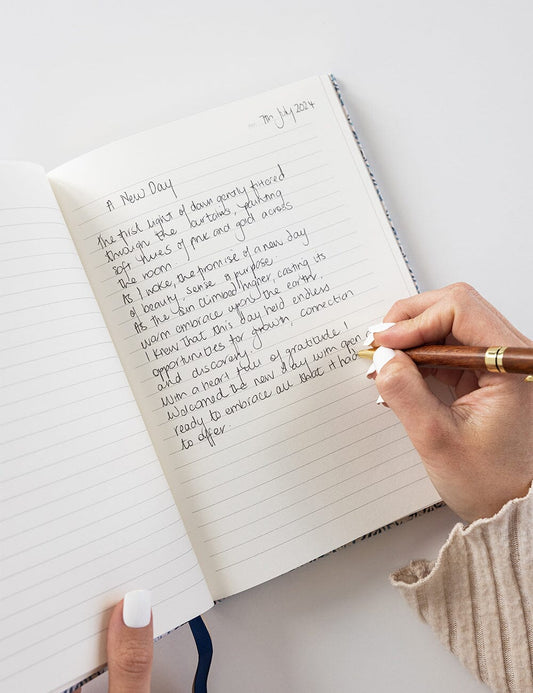 7th July 2024
A New Day
The first light of dawn gently filtered
through the curtains, painting
soft hues of pink and gold across
the room.
As I woke, the promise of a new day
of beauty, sense of purpose
As the sun climbed higher, casting its
warm embrace upon the earth.
I knew that this day held endless
opportunities for growth, connection
and discovery.
With a heart full of gratitude I
Welcomed the new day with open
ready to embrace all that it had
to offer.